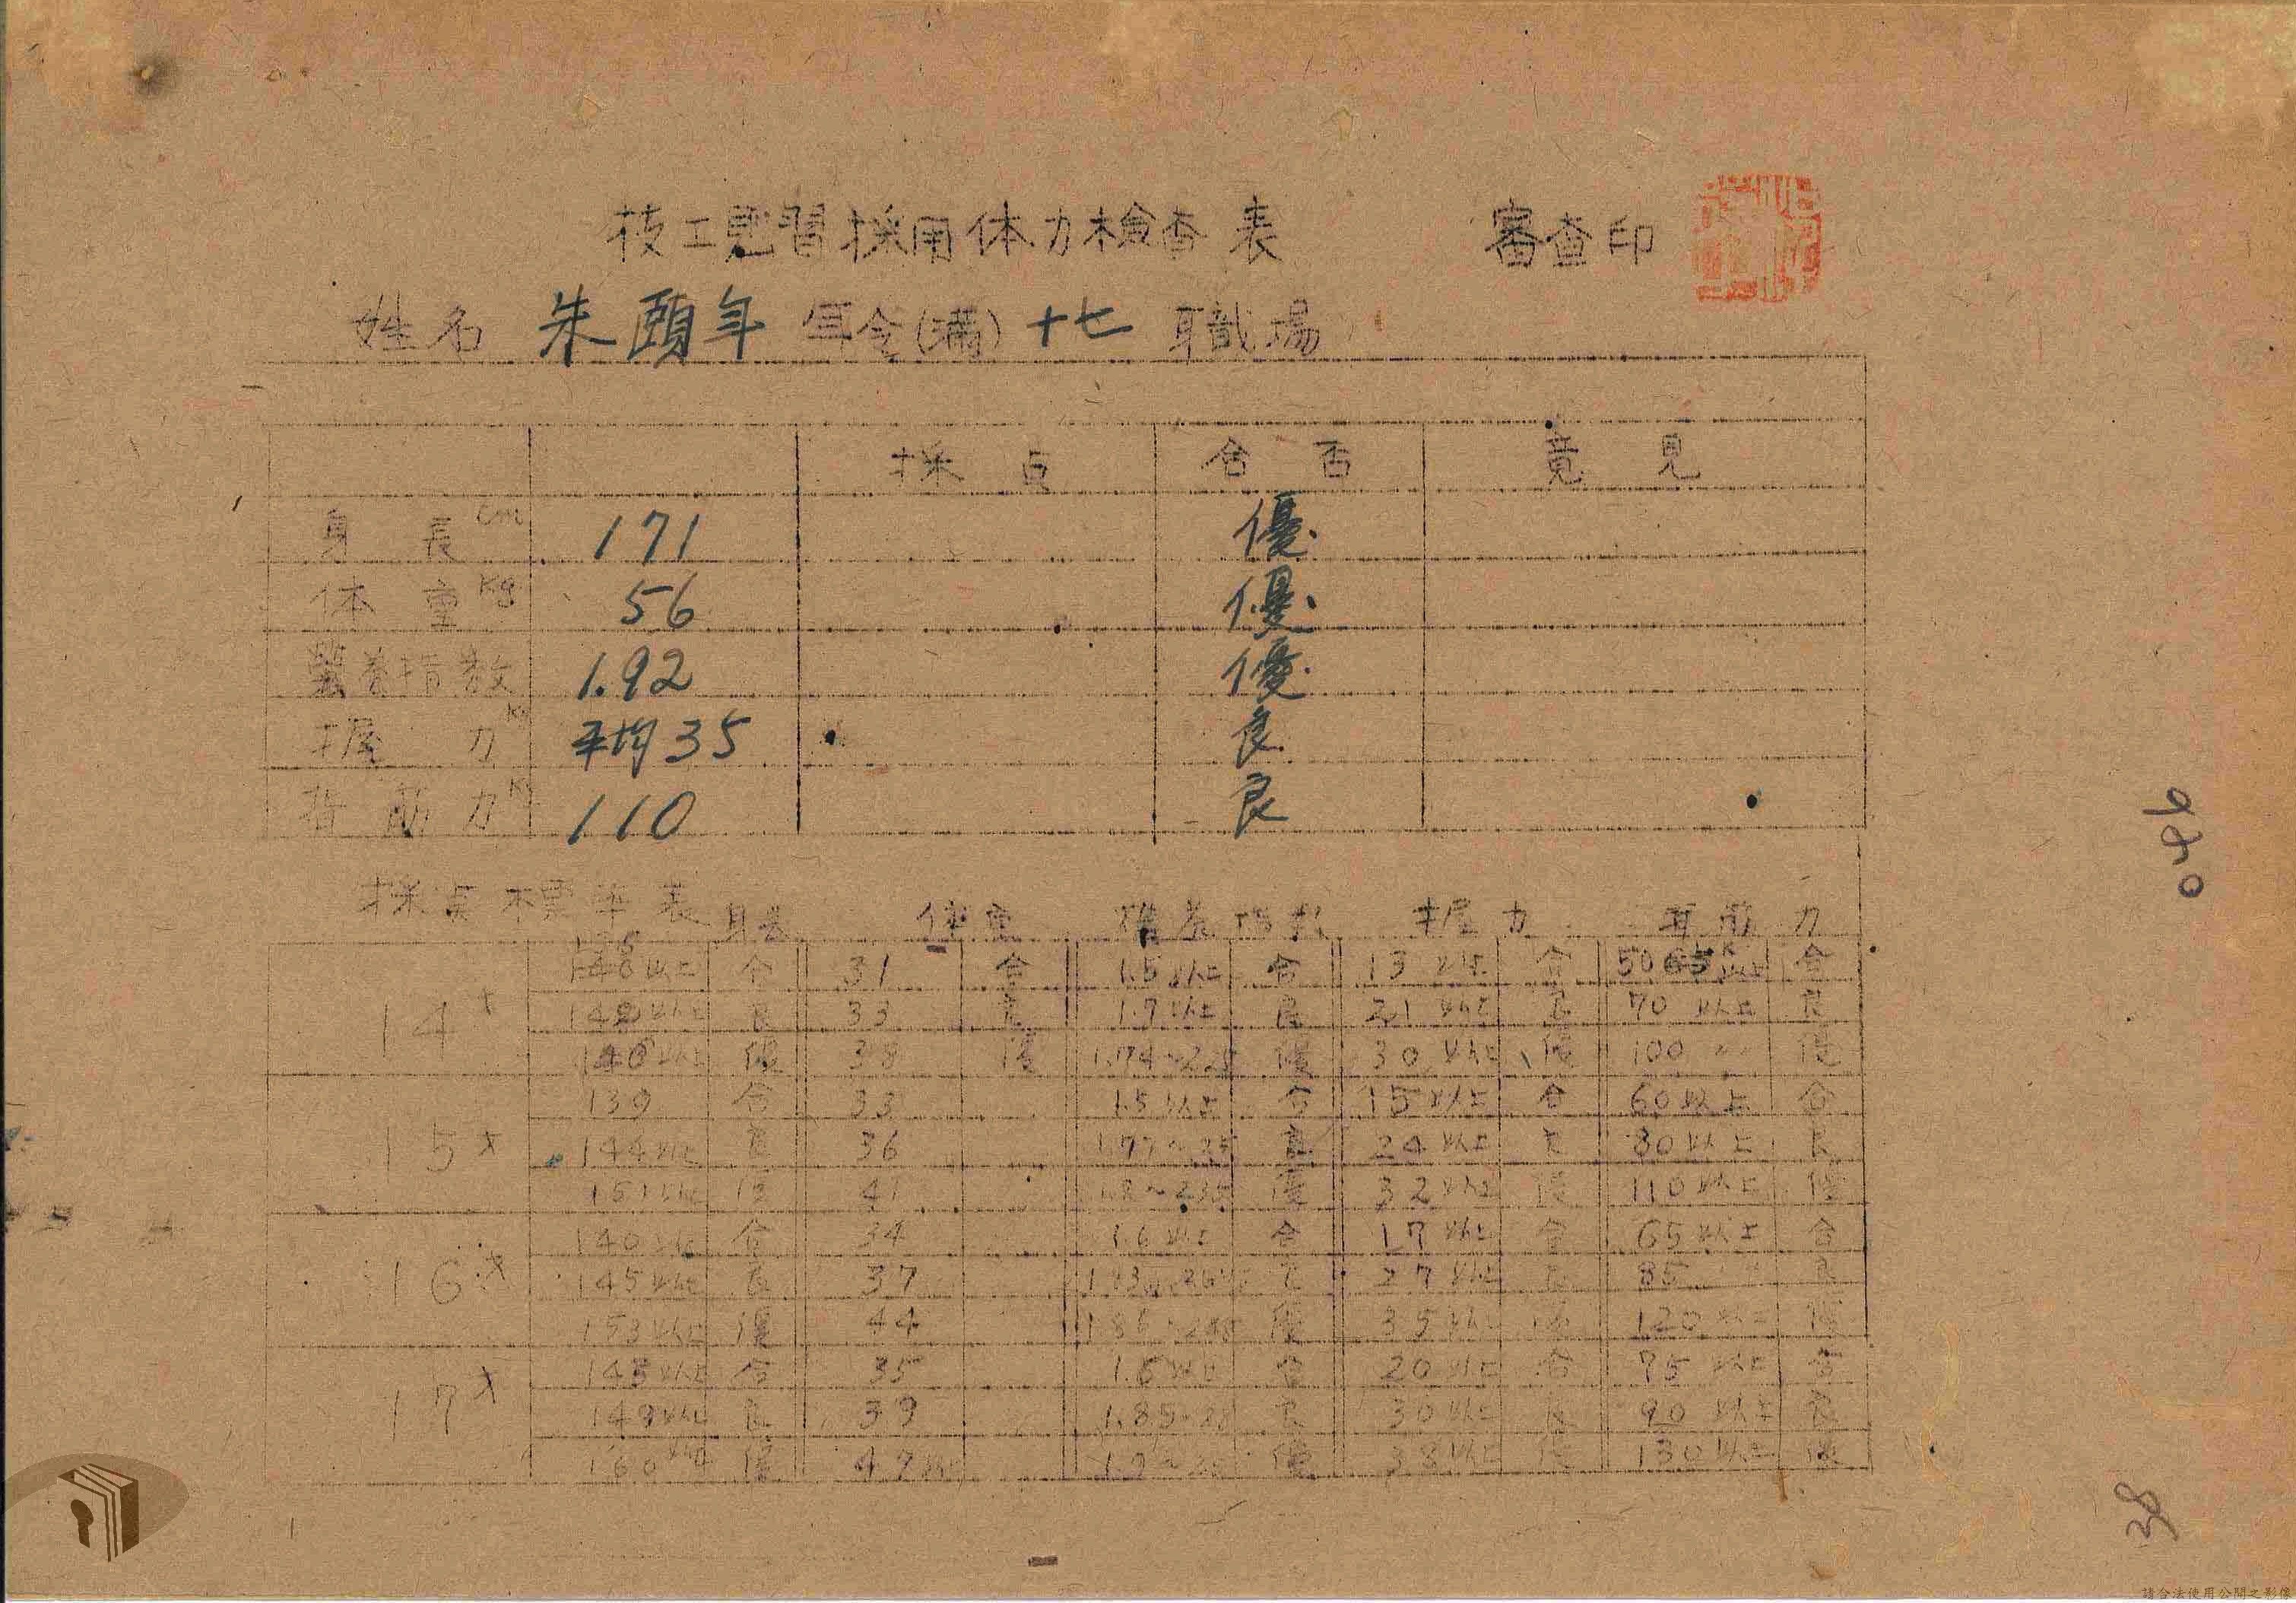 技工見習採用体力検査表 審査印
姓名 朱頤年 年令(満) 十七 職場
採点 合否 意見
身長 cm 171 優
体重 Kg 56 優
営養指数 1.92 優
握力 Kg 平均35 良
背筋力 K 110 良
採点標準表 身長 体重 指数 握力 背筋力
14才 以上 合 31 合 1.5以上 合 13以上 合 50 以上 合
以上 良 33 良 1.7以上 良 21以上 良 70以上 良
以上 優 38 優 優 30以上 優 100 〃 優
15才 139 合 33 1.5以上 合 15以上 合 60以上 合
144以上 良 36 良 24以上 良 80以上 良
151以上 優 41 優 32以上 優 110以上 優
16才 140以上 合 34 1.6以上 合 17以上 合 65以上 合
145以上 良 37 良 27以上 良 85 良
153以上 優 44 優 35以上 優 120以上 優
17才 143以上 合 35 1.6以上 合 20以上 合 75以上 合
149以上 良 39 良 30以上 良 90以上 良
160以上 優 47以上 優 38以上 優 130以上 優
38
請合法使用公開之影像